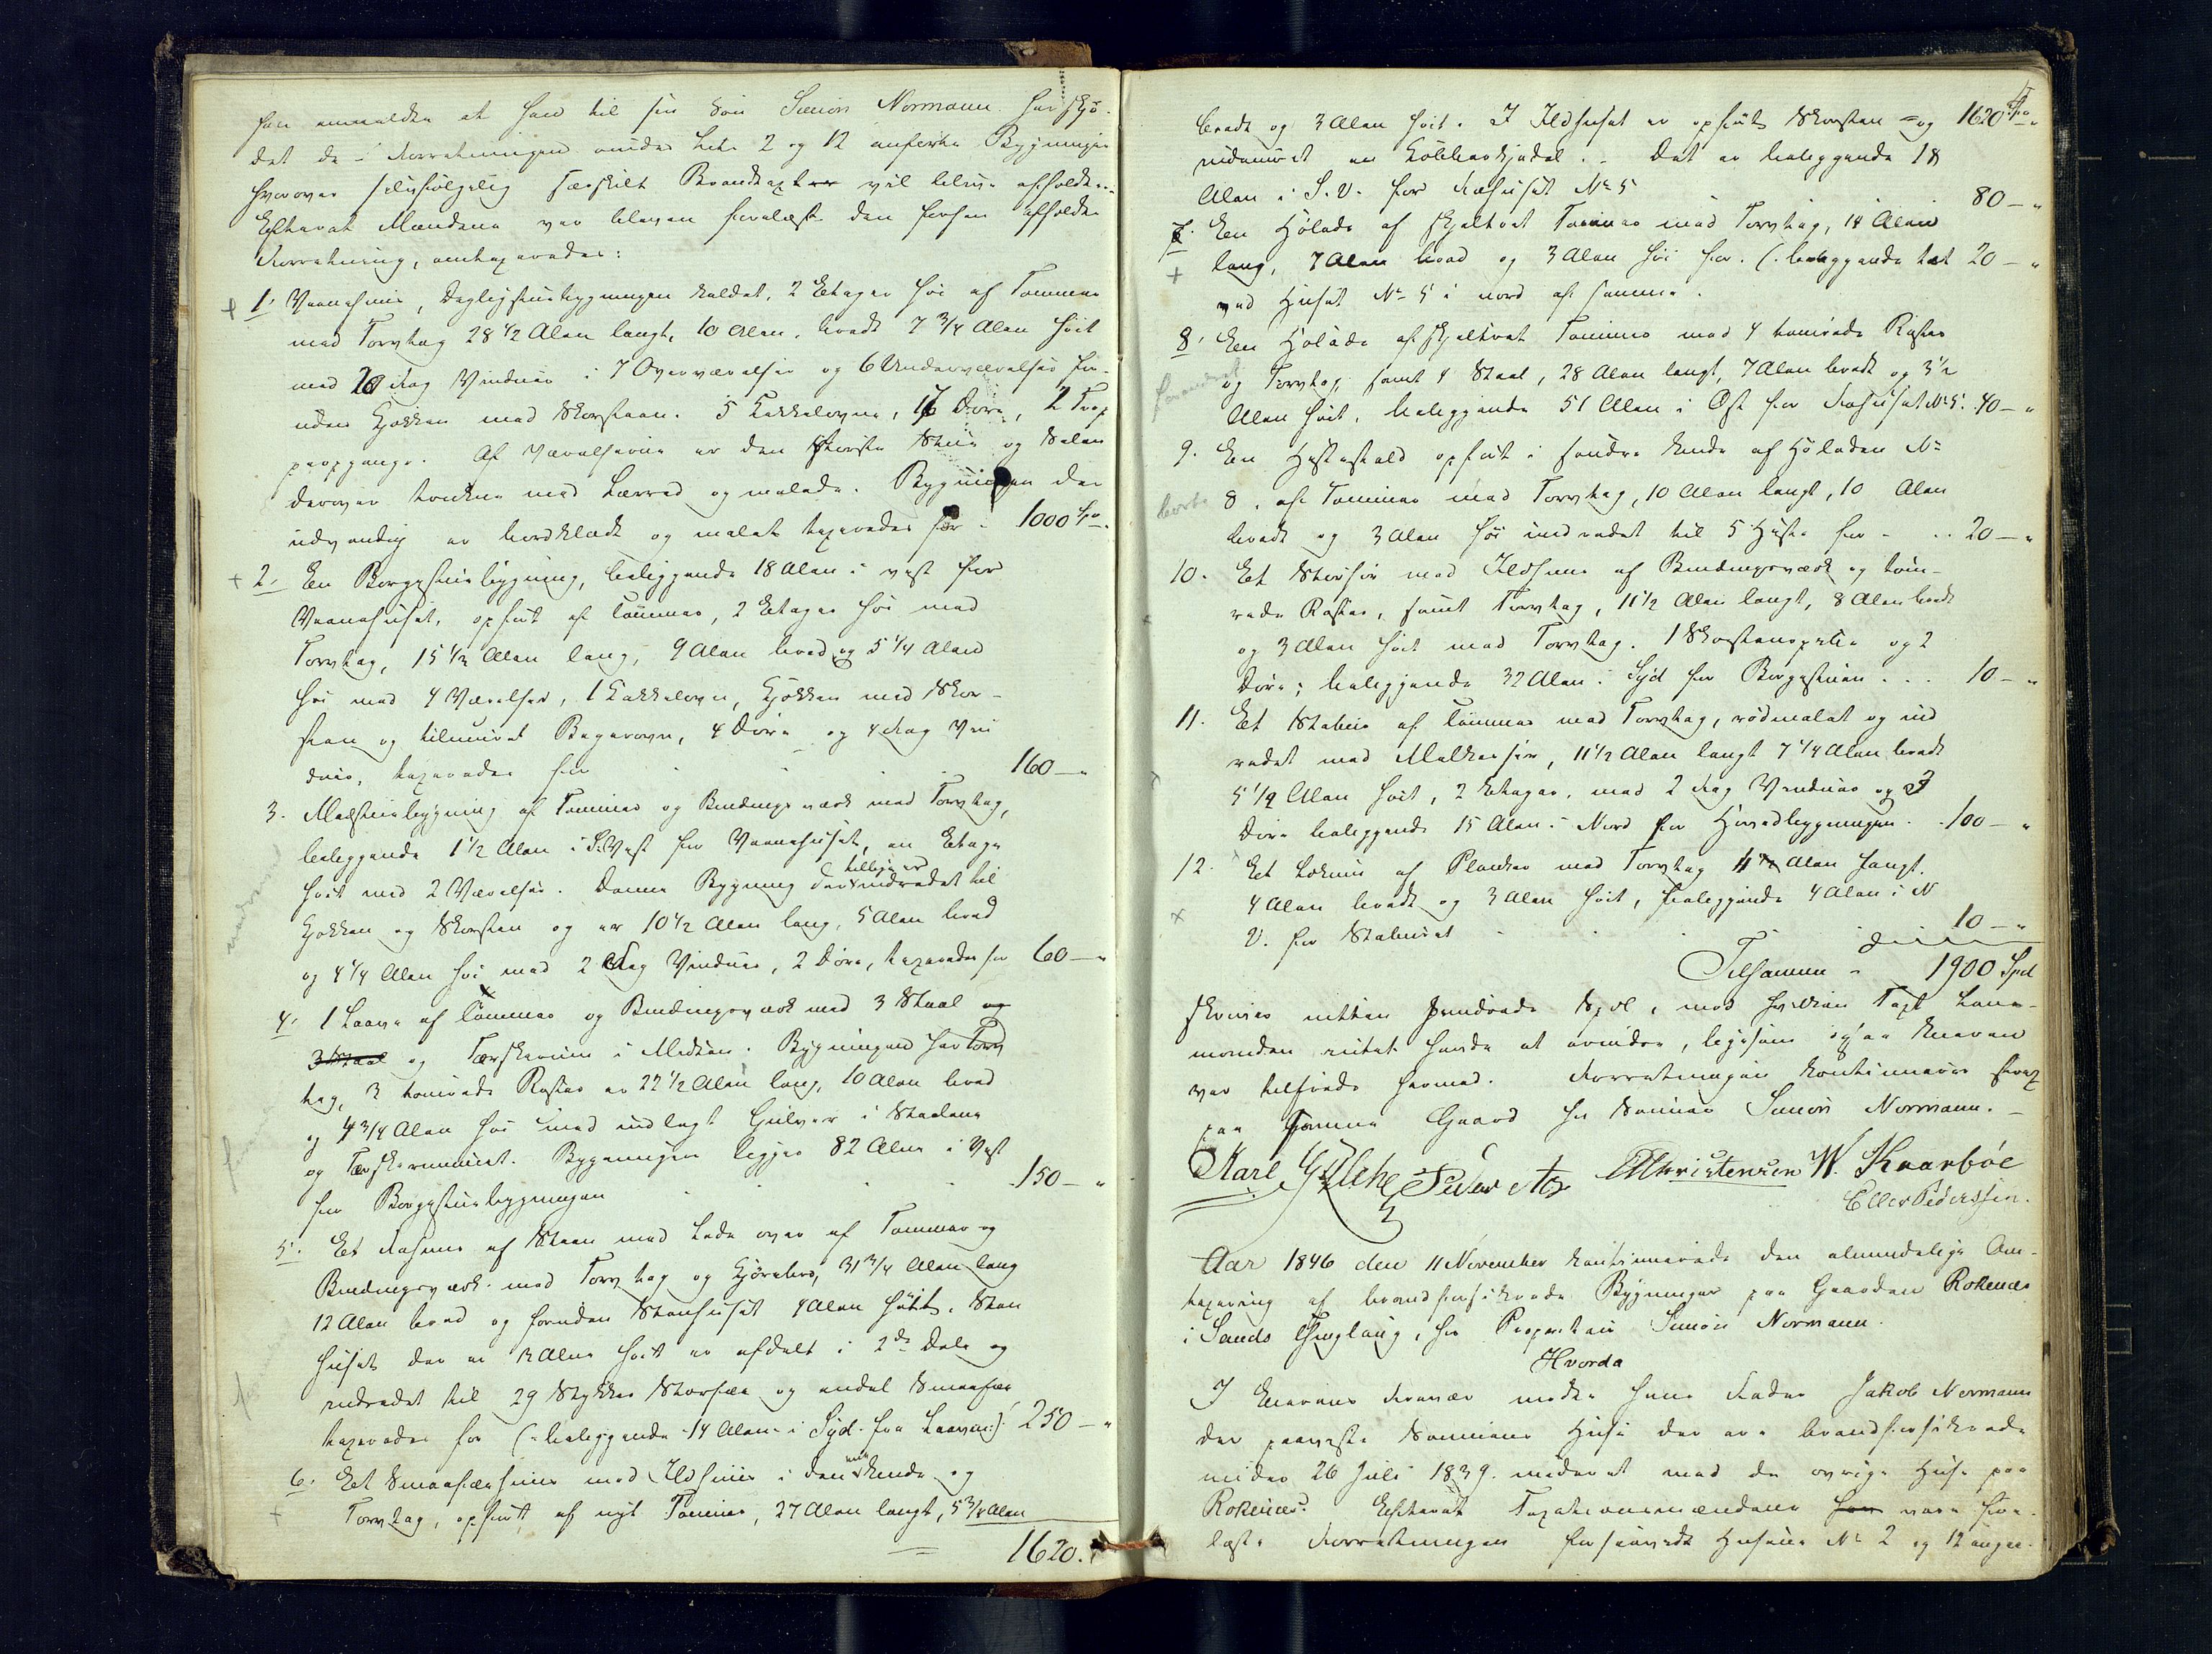 han anmeldte at han til sin Søn Simon Normann har skjø-
det de i Forretningen under Litr 2 og 12 anførte Bygninger
hvorover selvfølgelig særskilt Brandtaxt vil blive afholdt.
Efterat Mændene var bleven forelæst den forhen afholdte
Forretning, omtaxeredes:
1. Vaanehuus, Dagligstuebygningen kaldet, 2 Etager høi af Tømmer
med Torvtag 28 1/2 Alen langt, 10 Alen bredt 7 3/4 Alen høit
med 20 Fag Vinduer i 7 Overværelser og 6 Underværelser for-
uden Kjøkken med Skorsteen. 5 Kakkelovne, 17 Døre, 2 Trap
peopgange. Af Værelserne er den største Stue og Salen
derover trukne med Lærred og malede. Bygningen der
udvendig er bordklædt og malet taxeredes for - 1000 Spd.
2. En Borgestuebygning, beliggende 18 Alen i vest for
Vaanehuset, opført af Tømmer, 2 Etager høi med
Torvtag, 15 1/2 Alen lang, 9 Alen bred og 5 1/4 Alen
høi med 4 Værelser, 1 Kakkelovn, Kjøkken med Skor-
steen og tilmuret Bagerovn, 4 Døre og 4 Fag Vin
duer, taxeredes for 160 — "
3. Mælkestuebygning af Tømmer og Bindingsværk med Torvtag,
beliggende 1 1/2 Alen i S.Vest for Vaanehuset, en Etage
høit med 2 Værelser. Denne Bygning der tillige er indredet til
Kjøkken og Skorsten og er 10 1/2 Alen lang, 5 Alen bred
og 4 1/4 Alen høi med 2 Fag Vinduer, 2 Døre, taxeredes for 60 — "
4. 1 Laave af Tømmer og Bindingsværk med 3 Staal og
3 Staal og Tærskerum i Midten. Bygningen har Torv
tag, 3 tømrede Røster er 22 1/2 Alen lang, 10 Alen bred
og 4 3/4 Alen høi med indlagt Gulver i Staalene
og Tærskerummet. Bygningen ligger 82 Alen i Vest
for Borgestuebygningen 150 — "
5. Et Fæhuus af Steen med Lade over af Tømmer og
Bindingsværk med Torvtag og Kjørebro, 31 3/4 Alen lang
12 Alen bred og foruden Steenhuset 4 Alen høit. Steen
huset der er 3 Alen høit er afdelt i 2de Dele og
indredet til 29 Stykker Storfæe og endel Smaafæe
taxeredes for (: beliggende 14 Alen i Syd fra Laaven :) 250 — "
6. Et Smaafæehuus med Ildhuus i den ene Ende og
Torvtag, opført af nyt Tømmer, 27 Alen langt, 5 3/4 Alen
1620.
bredt og 3 Alen høit. I Ildhuset er opført Skorsten og 1620 Spd "
indmuret en Kobberkjedel. - Det er beliggende 18
Alen i S.V. for Fæhuset No 5 80 — "
7. En Hølade af skjeltret Tømmer med Torvtag, 14 Alen
lang, 7 Alen bred og 3 Alen høi for. (: beliggende tæt 20 — "
ved Huset No 5 i nord af samme.
8. En Hølade af skjeltret Tømmer med 4 tømrede Røster
forandret
og Torvtag samt 4 Staal, 28 Alen langt, 7 Alen bredt og 3 1/2
Alen høit, beliggende 51 Alen i Øst for Fæhuset No 5. 40 — "
9. En Hestestald opført i søndre Ende af Høladen No
borte
8. af Tømmer med Torvtag, 10 Alen langt, 10 Alen
bredt og 3 Alen høi indredet til 5 Heste for - . . 20 — "
10. Et Storhuus med Ildhuus af Bindingsværk og tøm-
rede Røster, samt Torvtag, 11 1/2 Alen langt, 8 Alen bredt
og 3 Alen høit med Torvtag. 1 Skorstenspibe og 2
Døre; beliggende 32 Alen i Syd for Borgestuen . . . 10 — "
11. Et Stabur af Tømmer med Torvtag, rødmalet og ind
redet med Melkebur, 11 1/2 Alen langt 7 1/4 Alen bredt
5 1/4 Alen høit, 2 Etager, med 2 Fag Vinduer og 3
Døre beliggende 15 Alen i Nord for Hovedbygningen. . 100 — "
12. Et Lokum af Planker med Torvtag 4 Alen langt.
4 Alen bredt og 3 Alen høit, beliggende 4 Alen i N
V. for Staburet 10 — "
Tilsammen - 1900 Spd
skriver nitten hundrede Spdl, mod hvilken Taxt Lens-
manden intet havde at erindre, ligesom ogsaa Eieren
var tilfreds hermed. Forretningen kontinueres strax
paa samme Gaard hos Sønnen Simon Normann. —
Karl Peder Christensen W. Kaarbøe
Eller Pedersen.
Aar 1846 den 11 November kontinueredes den almindelige Om-
taxering af brandforsikrede Bygninger paa Gaarden Rokenæs
i Sands Thinglaug, hos Proprietair Simon Normann.
Hvorda
I Eierens Fravær mødte hans Fader Jakob Normann
der paaviste Sønnens Huse der ere brandforsikrede
under 26 Juli 1839. inderet med de øvrige Huse paa
Rokenæs. Efterat Taxationsmændene vare fore-
læste Forretningen forsaavidt Husene No 2 og 12 angaa-